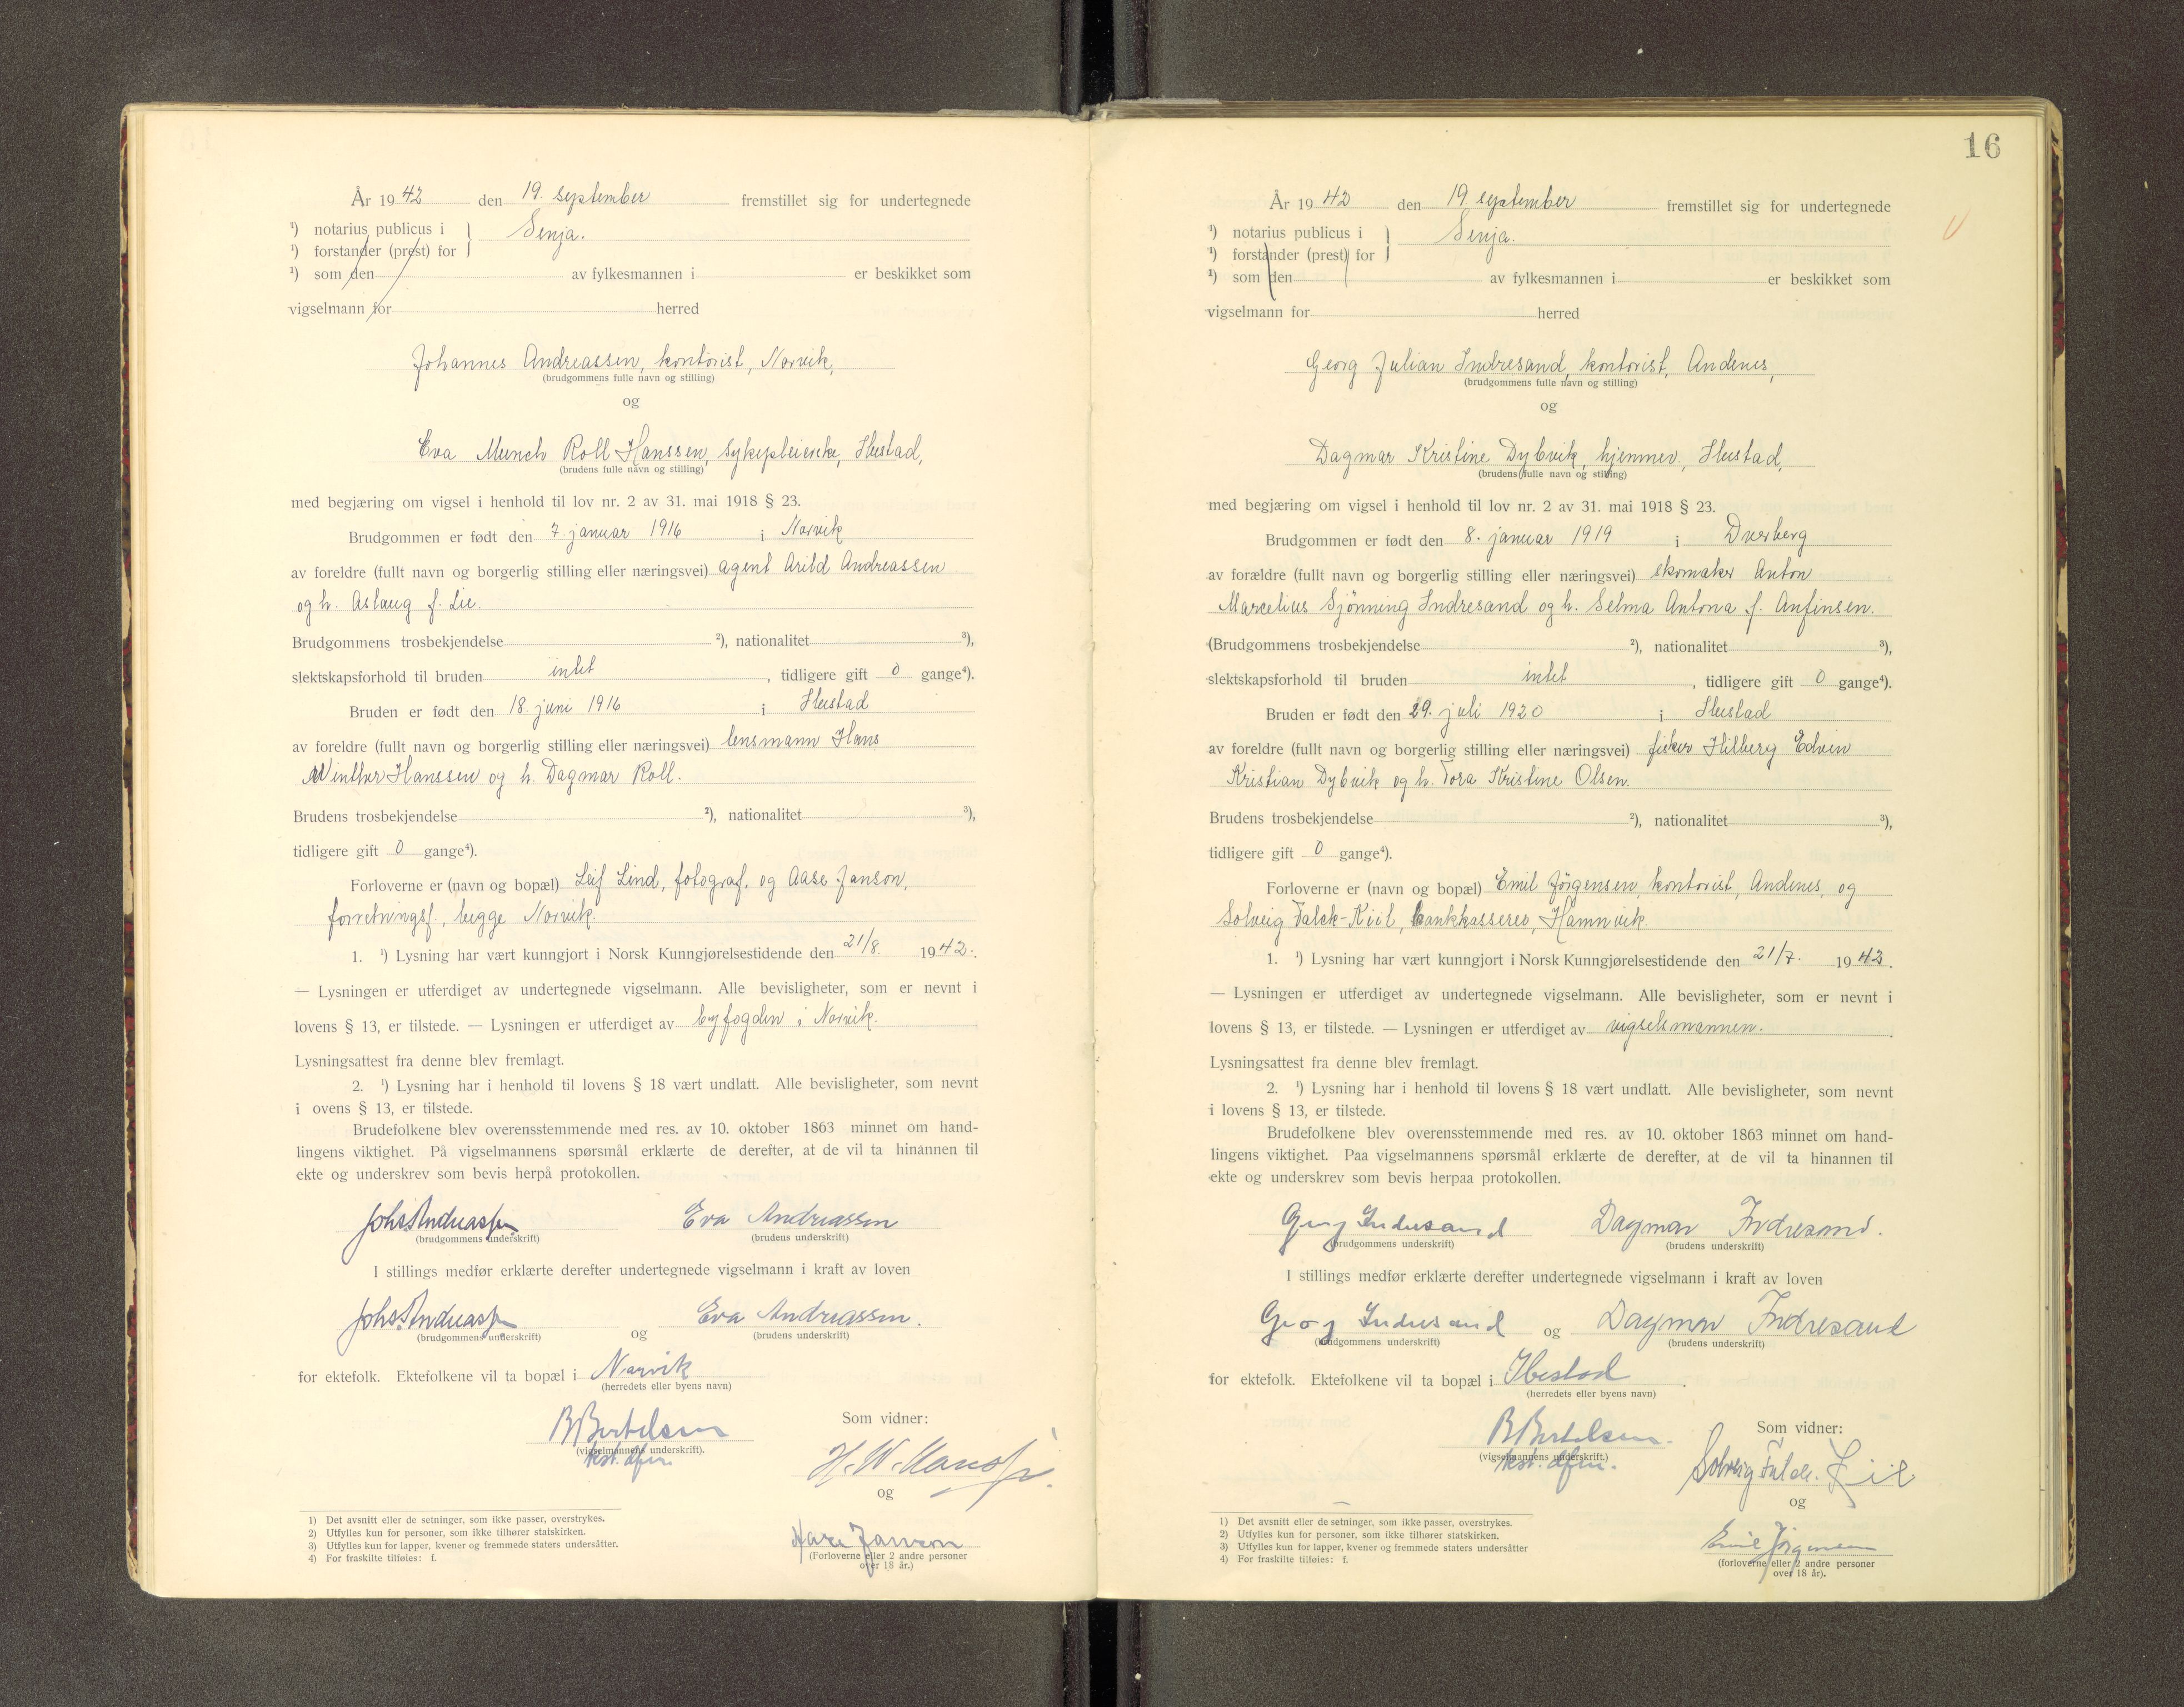 År 1942 den 19. september fremstillet sig for undertegnede
¹) notarius publicus i } Senja.
¹) forstander (prest) for
¹) som den av fylkesmannen i er beskikket som
vigselmann for herred
Johannes Andreassen, kontorist, Narvik,
(brudgommens fulle navn og stilling)
og
Eva Munch Roll Hanssen, sykepleierske, Ibestad,
(brudens fulle navn og stilling)
med begjæring om vigsel i henhold til lov nr. 2 av 31. mai 1918 § 23.
Brudgommen er født den 7. januar 1916 i Narvik
av foreldre (fullt navn og borgerlig stilling eller næringsvei) agent Arild Andreassen
og h. Aslaug f. Lie.
Brudgommens trosbekjendelse ²), nationalitet ³),
slektskapsforhold til bruden intet , tidligere gift 0 gange⁴).
Bruden er født den 18. juni 1916 i Ibestad
av foreldre (fullt navn og borgerlig stilling eller næringsvei) lensmann Hans
Winther Hanssen og h. Dagmar Roll.
Brudens trosbekjendelse ²), nationalitet ³),
tidligere gift 0 gange⁴).
Forloverne er (navn og bopæl) Leif Lind, fotograf, og Aase Janson,
forretningsf., begge Narvik.
1. ¹) Lysning har vært kunngjort i Norsk Kunngjørelsestidende den 21/8. 1942.
— Lysningen er utferdiget av undertegnede vigselmann. Alle bevisligheter, som er nevnt i
lovens § 13, er tilstede. — Lysningen er utferdiget av byfogden i Narvik.
Lysningsattest fra denne blev fremlagt.
2. ¹) Lysning har i henhold til lovens § 18 vært undlatt. Alle bevisligheter, som nevnt
i ovens § 13, er tilstede.
Brudefolkene blev overensstemmende med res. av 10. oktober 1863 minnet om hand-
lingens viktighet. På vigselmannens spørsmål erklærte de derefter, at de vil ta hinannen til
ekte og underskrev som bevis herpå protokollen.
Johs Andreassen Eva Andreassen
(brudgommens underskrift) (brudens underskrift)
I stillings medfør erklærte derefter undertegnede vigselmann i kraft av loven
Johs Andreassen og Eva Andreassen.
(brudgommens underskrift) (brudens underskrift)
for ektefolk. Ektefolkene vil ta bopæl i Narvik
(herredets eller byens navn)
B Bertelsen
(vigselmannens underskrift).
kst. dfm.
Som vidner:
H. W. Hanssen.
og
Aase Janson
(Forloverne eller 2 andre personer
over 18 år.)
1) Det avsnitt eller de setninger, som ikke passer, overstrykes.
2) Utfylles kun for personer, som ikke tilhører statskirken.
3) Utfylles kun for lapper, kvener og fremmede staters undersåtter.
4) For fraskilte tilføies: f.
16
År 1942 den 19 september fremstillet sig for undertegnede
¹) notarius publicus i } Senja.
¹) forstander (prest) for
¹) som den av fylkesmannen i er beskikket som
vigselmann for herred
Georg Julian Indresand, kontorist, Andenes,
(brudgommens fulle navn og stilling)
og
Dagmar Kristine Dybvik, hjemmev., Ibestad,
(brudens fulle navn og stilling)
med begjæring om vigsel i henhold til lov nr. 2 av 31. mai 1918 § 23.
Brudgommen er født den 8. januar 1919 i Dverberg
av forældre (fullt navn og borgerlig stilling eller næringsvei) skomaker Anton
Marcelius Sjønning Indresand og h. Selma Antona f. Anfinsen.
(Brudgommens trosbekjendelse ²), nationalitet ³),
slektskapsforhold til bruden intet , tidligere gift 0 gange⁴).
Bruden er født den 29. juli 1920 i Ibestad
av foreldre (fullt navn og borgerlig stilling eller næringsvei) fisker Hilberg Edvin
Kristian Dybvik og h. Tora Kristine Olsen.
Brudens trosbekjendelse ²), nationalitet ³),
tidligere gift 0 gange⁴).
Forloverne er (navn og bopæl) Emil Jörgensen, kontorist, Andenes, og
Solveig Falck-Kiil, bankkasserer, Hamnvik.
1. ¹) Lysning har vært kunngjort i Norsk Kunngjørelsestidende den 21/7. 1942.
— Lysningen er utferdiget av undertegnede vigselmann. Alle bevisligheter, som er nevnt i
lovens § 13, er tilstede. — Lysningen er utferdiget av vigselsmannen.
Lysningsattest fra denne blev fremlagt.
2. ¹) Lysning har i henhold til lovens § 18 vært undlatt. Alle bevisligheter, som nevnt
i lovens § 13, er tilstede.
Brudefolkene blev overensstemmende med res. av 10. oktober 1863 minnet om hand-
lingens viktighet. Paa vigselmannens spørsmål erklærte de derefter, at de vil ta hinannen til
ekte og underskrev som bevis herpaa protokollen.
Georg Indresand Dagmar Indresand.
(brudgommens underskrift) (brudens underskrift)
I stillings medfør erklærte derefter undertegnede vigselmann i kraft av loven
Georg Indresand og Dagmar Indresand
(brudgommens underskrift) (brudens underskrift)
for ektefolk. Ektefolkene vil ta bopæl i Ibestad.
(herredets eller byens navn)
B Bertelsen.
(vigselmannens underskrift.)
kst. dfm.
Som vidner:
Solveig Falck. Kiil
og
Emil Jörgensen
(forloverne eller 2 andre personer
over 18 år).
1) Det avsnitt eller de setninger, som ikke passer, overstrykes.
2) Utfylles kun for personer, som ikke tilhører statskirken.
3) Utfylles kun for lapper, kvener og fremmede staters undersåtter
4) For fraskilte tilføies: f.